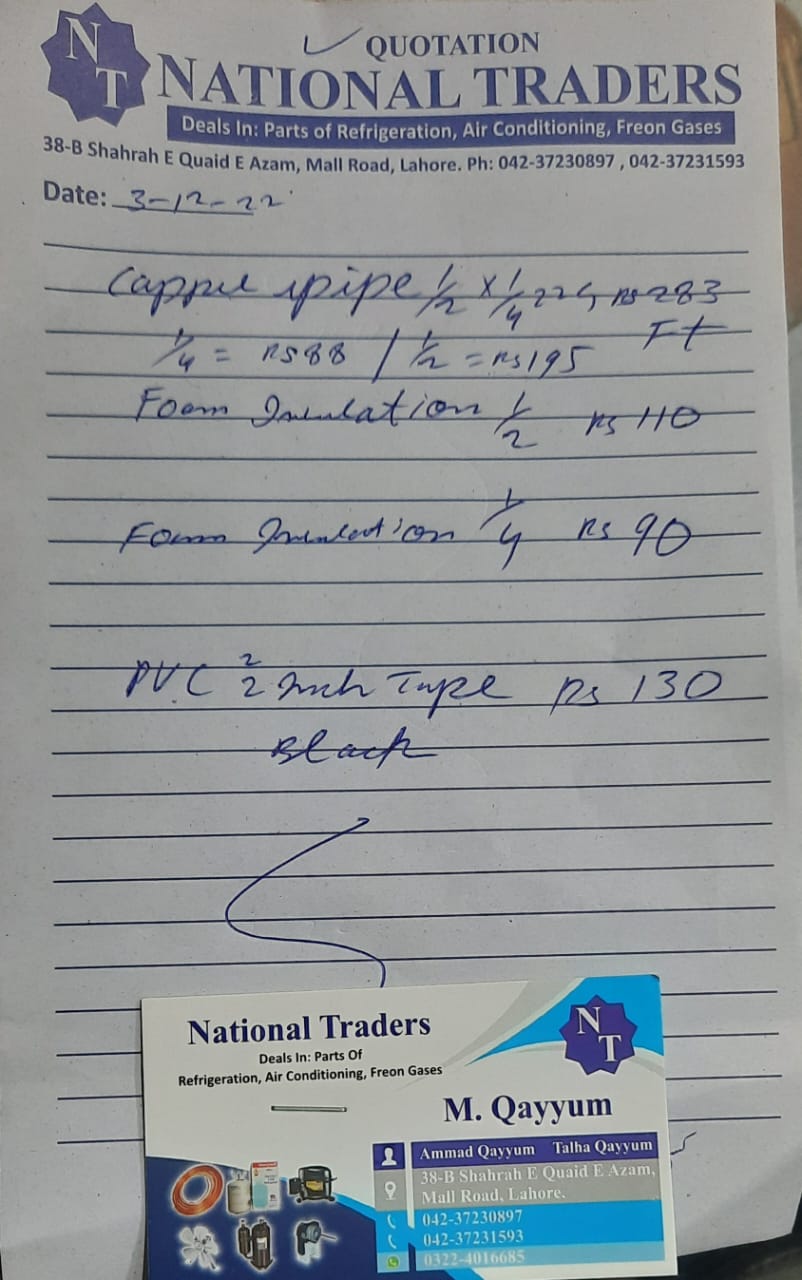 N T
QUOTATION
NATIONAL TRADERS
Deals In: Parts of Refrigeration, Air Conditioning, Freon Gases
38-B Shahrah E Quaid E Azam, Mall Road, Lahore. Ph: 042-37230897 , 042-37231593
Date: 3-12-22
pipe 1/2 X 1/4 22G Rs 283
Ft
1/4 = RS 88 / 1/2 = Rs 195
Foam Insulation 1/2 Rs 110
Foam Insulation 1/4 Rs 90
PVC 2 inch Tape Rs 130
Black
National Traders
Deals In: Parts Of
Refrigeration, Air Conditioning, Freon Gases
N T
M. Qayyum
Ammad Qayyum Talha Qayyum
38-B Shahrah E Quaid E Azam,
Mall Road, Lahore.
042-37230897
042-37231593
0322-4016685